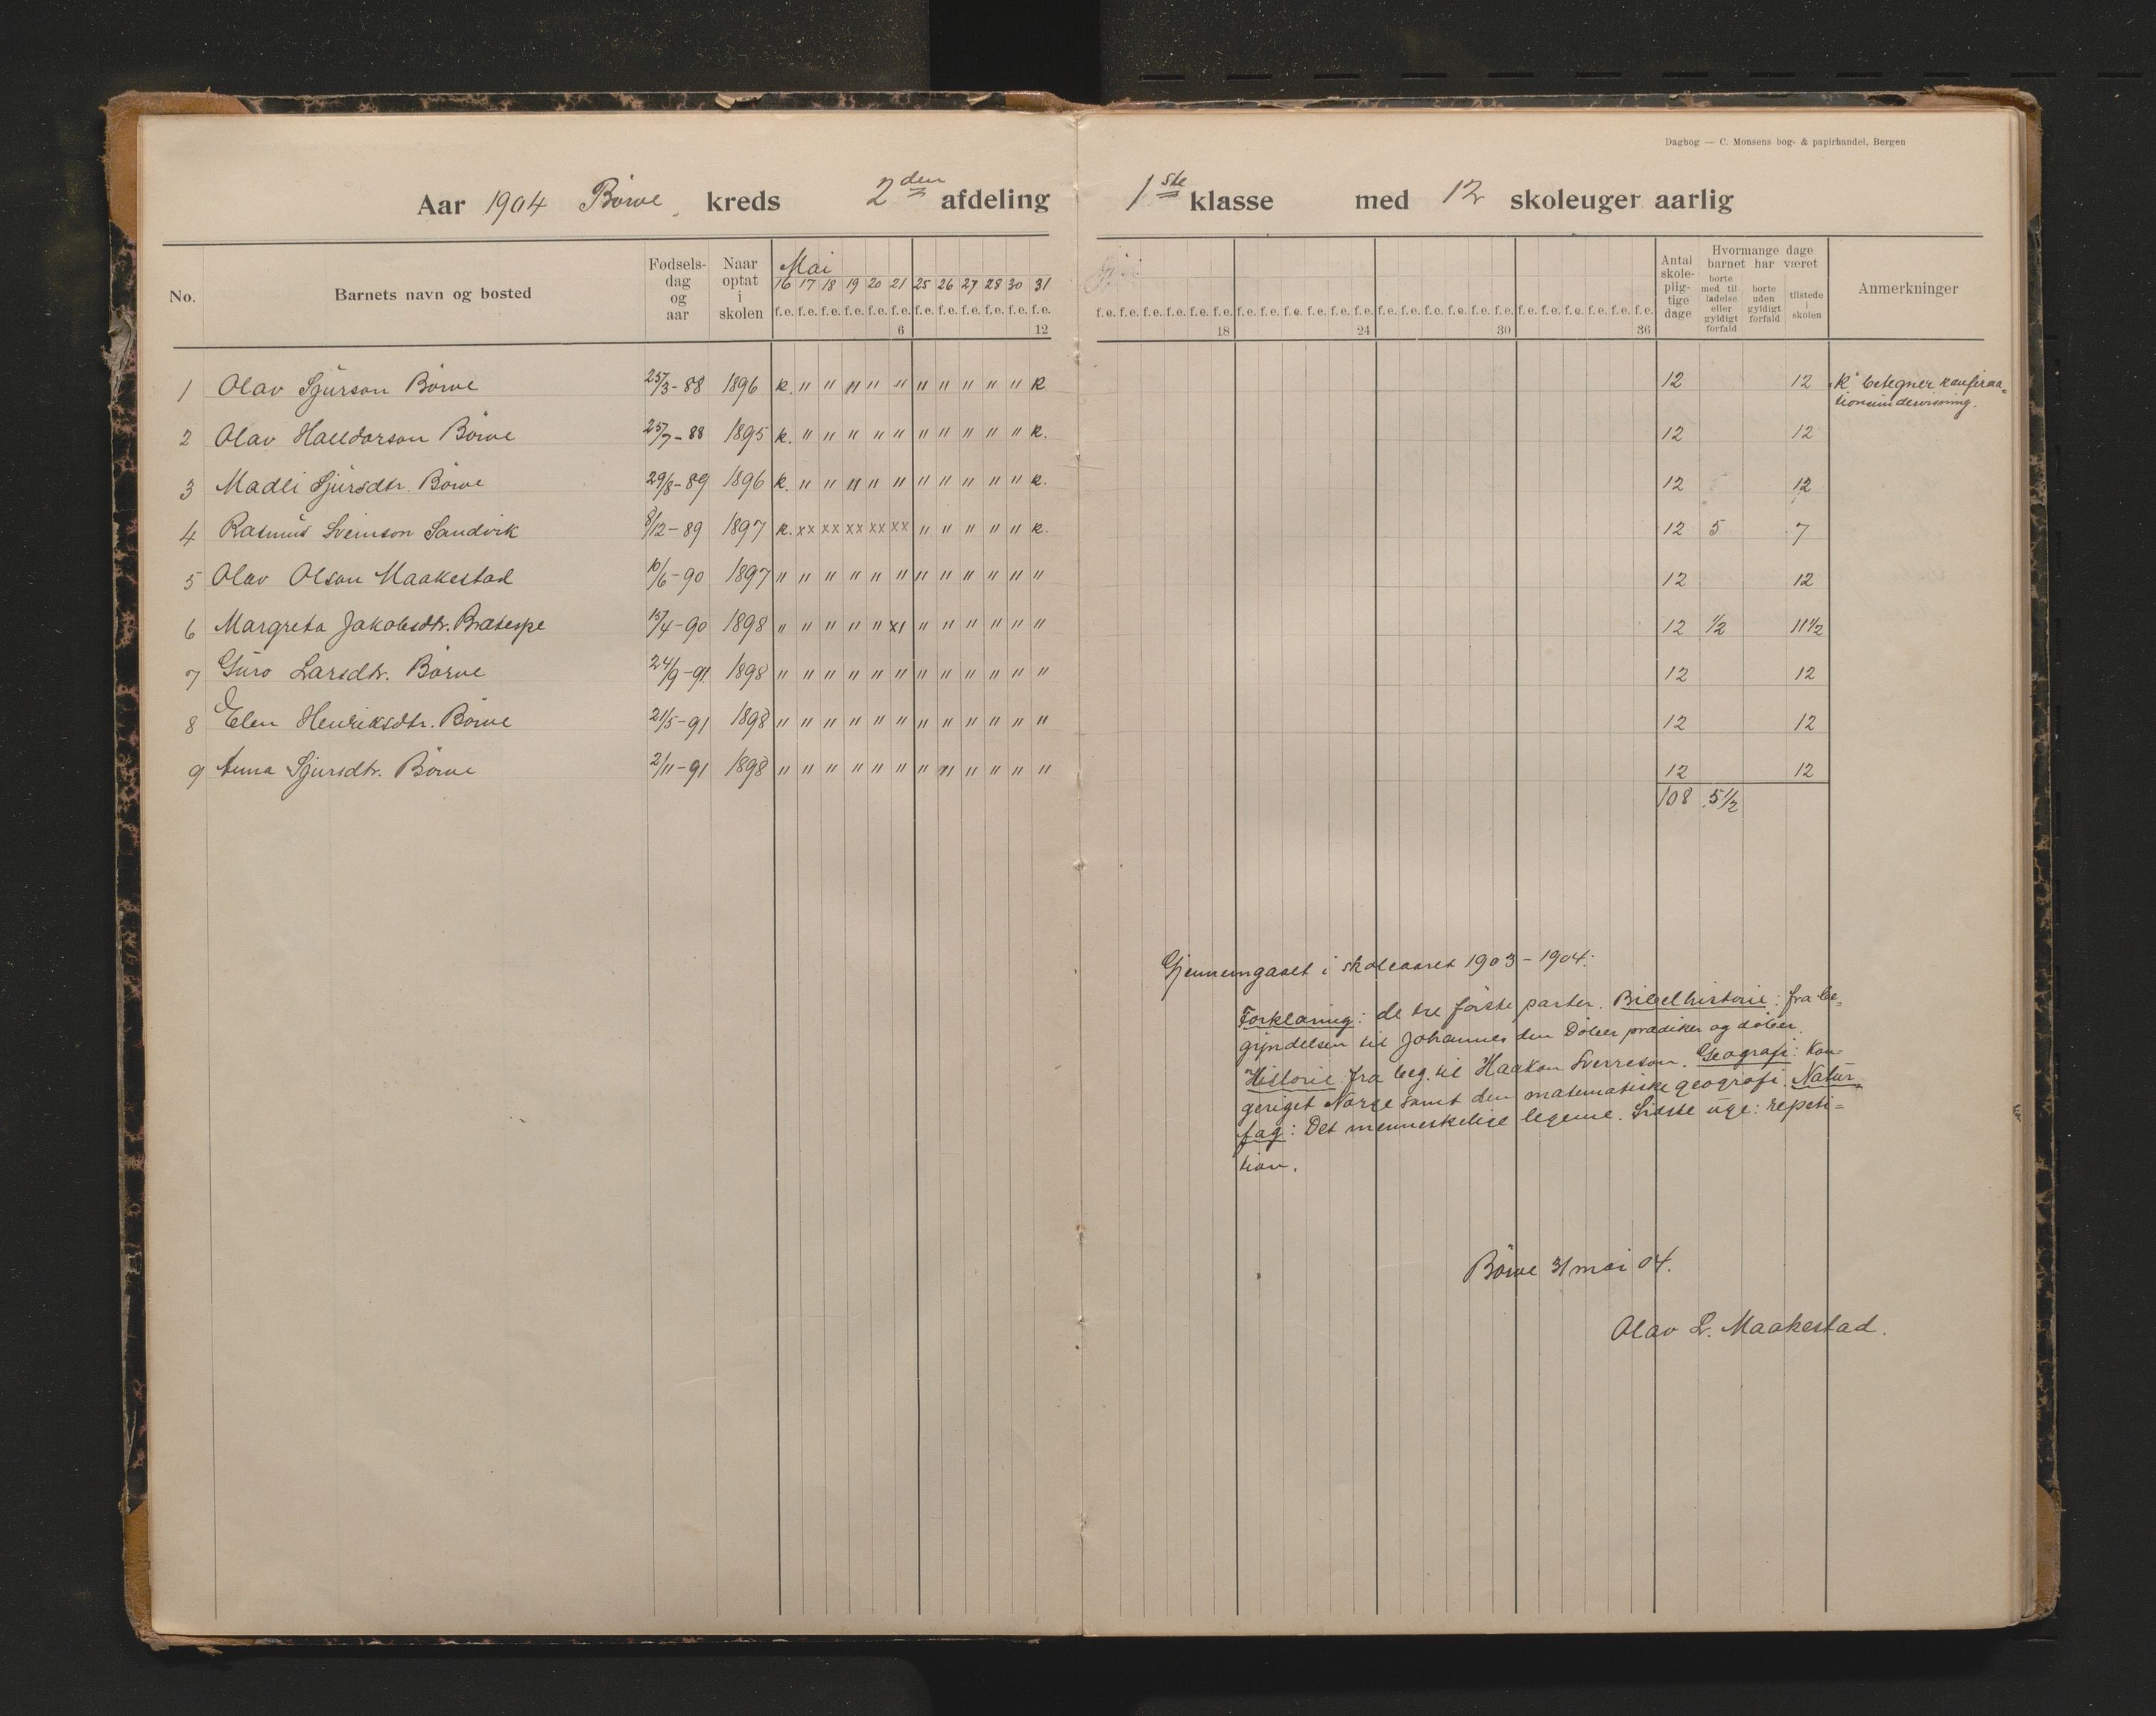 Dagbog — C. Monsens bog- & papirhandel, Bergen
Aar 1904 Börve kreds 2den afdeling 1ste klasse med 12 skoleuger aarlig
No. Barnets navn og bosted Fødsels-dag og aar Naar optat i skolen Mai Antal skole-plig-tige dage Hvormange dage barnet har været Anmerkninger
borte med til ladelse eller gyldigt forfald borte uden gyldigt forfald tilstede i skolen
16 17 18 19 20 21 25 26 27 28 30 31
f.e. f.e. f.e. f.e. f.e. f.e. f.e. f.e. f.e. f.e. f.e. f.e. f.e. f.e. f.e. f.e. f.e. f.e. f.e. f.e. f.e. f.e. f.e. f.e. f.e. f.e. f.e. f.e. f.e. f.e. f.e. f.e. f.e. f.e. f.e. f.e.
6 12 18 24 30 36
1 Olav Sjurson Börve 25/3-88 1896 k. " " " " " " " " " " k 12 12 "K" betegner konfirma=
tionsundervisning.
2 Olav Halldorson Börve 25/7-88 1895 k. " " " " " " " " " " k. 12 12
3 Madli Sjursdtr. Börve 29/8-89 1896 k. " " " " " " " " " " k. 12 12
4 Rasmus Sveinson Sandvik 8/12-89 1897 k. xx xx xx xx xx " " " " " k. 12 5 7
5 Olav Olson Maakestad 10/6-90 1897 " " " " " " " " " " " " 12 12
6 Margreta Jakobsdtr. Bratespe 15/4-90 1898 " " " " " x1 " " " " " " 12 1/2 11 1/2
7 Guro Larsdtr. Börve 24/9-91 1898 " " " " " " " " " " " " 12 12
8 Elen Henriksdtr. Börve 21/5-91 1898 " " " " " " " " " " " " 12 12
9 Anna Sjursdtr. Börve 2/11-91 1898 " " " " " " " " " " " " 12 12
108 5 1/2
Gjennemgaaet i skoleaaret 1903-1904:
Forklaring: de tre förste parter. Bibelhistorie: fra be=
gyndelsen til Johannes den Döber prædiker og döber.
Historie fra beg. til Haakon Sverreson. Geografi: Kon=
geriget Norge samt den matematiske geografi. Natur=
fag: Det menneskelige legeme. Sidste uge: repeti=
tion.
Börve 31 mai 04.
Olav L. Maakestad.